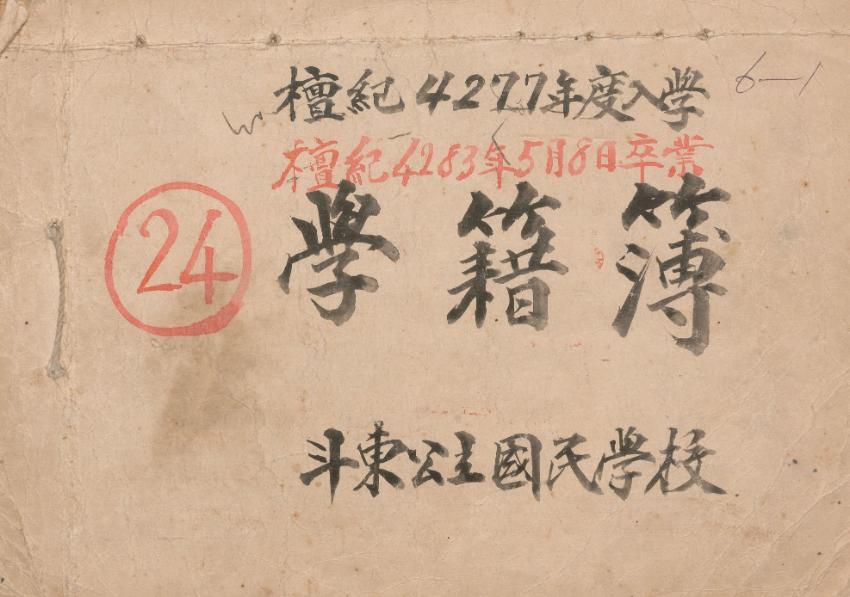 檀紀4277年度入学
6-1
檀紀4283年5月8日卒業
24
学籍簿
斗東公立國民学校